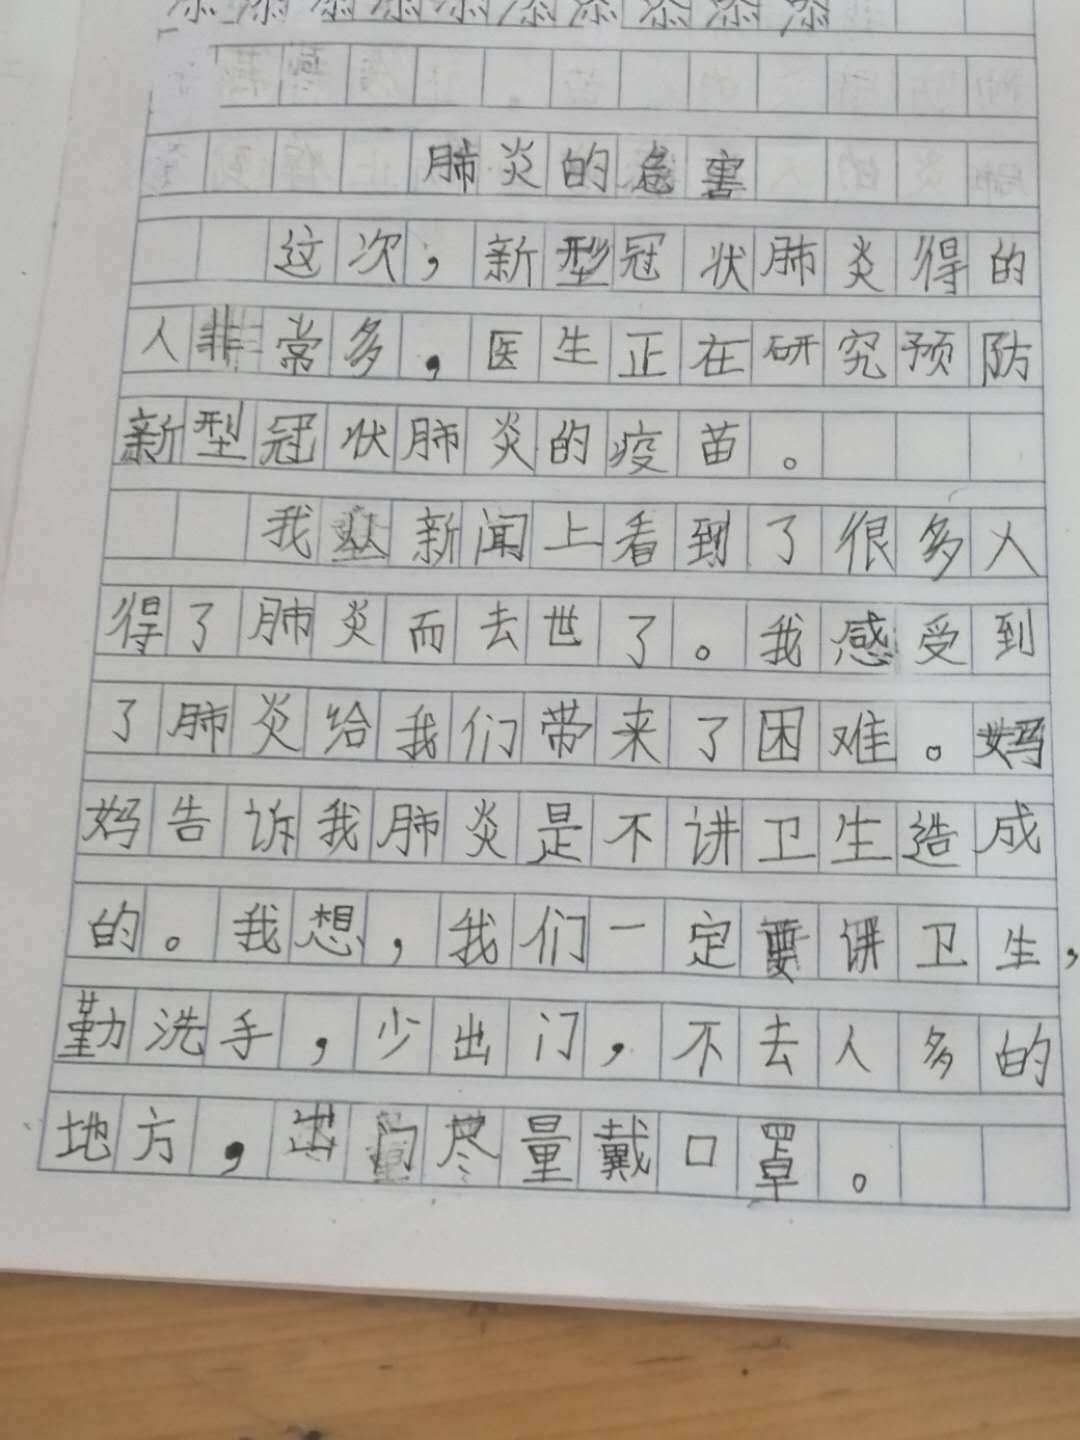 添添添添添添添添添添
肺炎的危害
这次，新型冠状肺炎得的
人非常多，医生正在研究预防
新型冠状肺炎的疫苗。
我从新闻上看到了很多人
得了肺炎而去世了。我感受到
了肺炎给我们带来了困难。妈
妈告诉我肺炎是不讲卫生造成
的。我想，我们一定要讲卫生，
勤洗手，少出门，不去人多的
地方，出门尽量戴口罩。